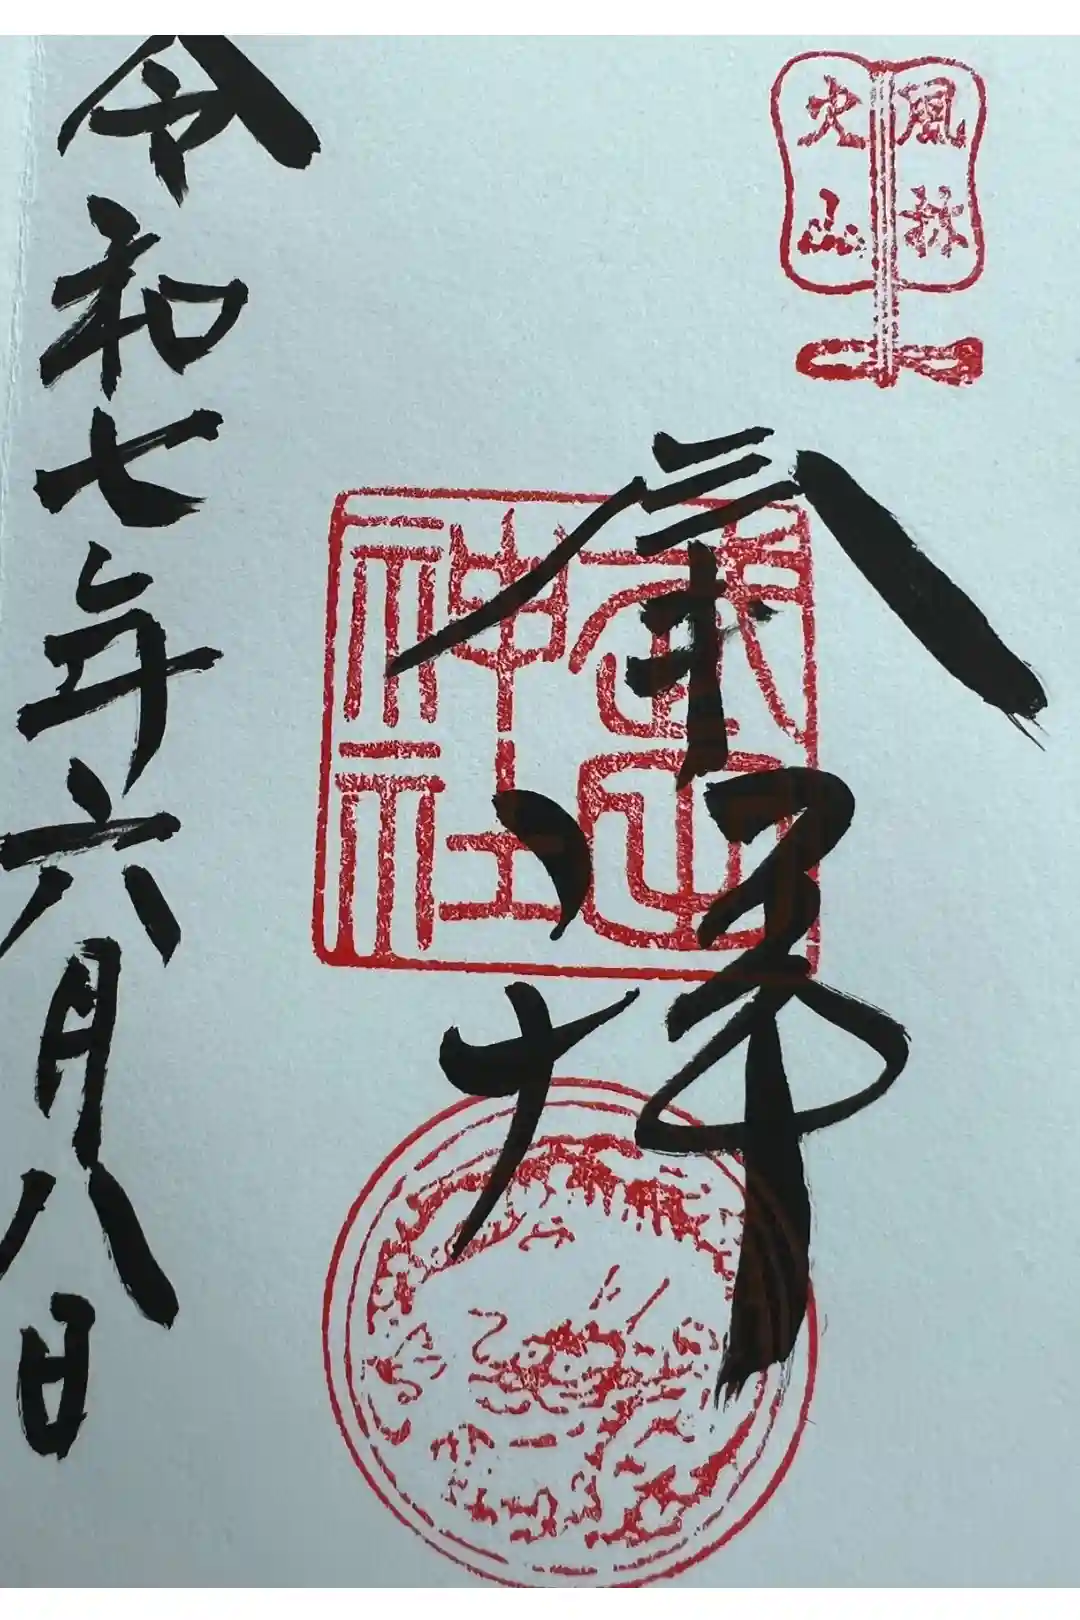 風林
火山
奉拝
武田
神社
令和七年六月八日